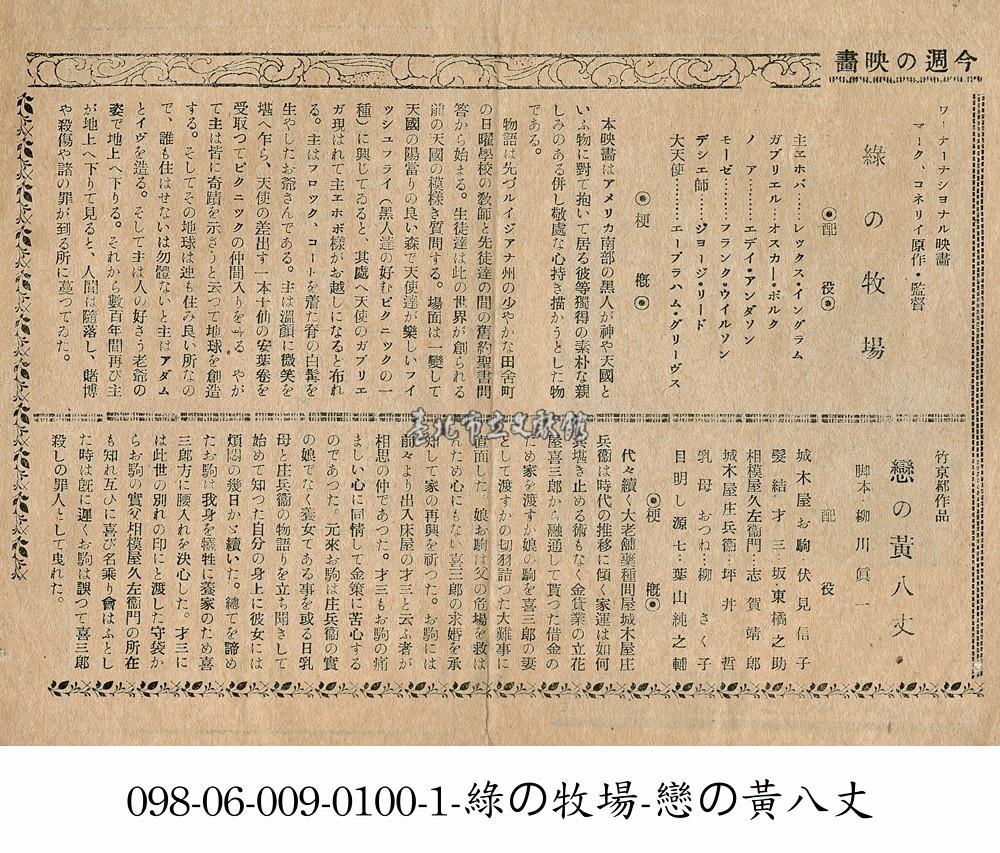 今週の映畫
ワーナーナショナル映畫
マーク、コネリイ原作・監督
綠の牧場
◉配役◉
主ヱホバ……レックス・イングラム
ガブリエル…オスカー・ポルク
ノア……エデイ・アンダソン
モーゼ………フランク・ウイルソン
デシエ師……ジョージ・リード
大天使………エーブラハム・グリーヴス
◉梗概◉
本映畫はアメリカ南部の黑人が神や天國と
いふ物に對て抱いて居る彼等獨得の素朴な親
しみのある併し敬虔な心持き描かうとした物
である。
物語は先づルイジアナ州の少やかな田舍町
の日曜學校の敎師と先徒達の間の舊約聖書問
答から始まる。生徒達は此の世界が創られる
前の天國の模樣き質問する。場面は一變して
天國の陽當りの良い森で天使達が樂しいフイ
ッシュフライ(黑人達の好むピクニックの一
種)に興じてゐると、其處へ天使のガブリエ
ガ現はれて主エホボ樣がお越しになると布れ
る。主はフロック、コートを着た脊の白髯を
生やしたお爺さんである。主は溫顏に微笑を
堪へ乍ら、天使の差出す一本十仙の安葉卷を
受取つてピクニックの仲間入りをする やが
て主は皆に奇蹟を示さうと云つて地球を創造
する。そしてその地球は連も住み良い所なの
で、誰も住はせないは勿體ないと主はアダム
とイヴを造る。そして主は人の好さう老爺の
姿で地上へ下りる。それから數百年間再び主
が地上へ下りて見ると、人間は墮落し、賭博
や殺傷や諸の罪が到る所に蔓つてゐた。
竹京都作品
脚本・柳川眞一
戀の黃八丈・
配役
城木屋お駒伏見信子
髮結才三・坂東橘之助
相模屋久左衞門・志賀靖郎
城木屋庄兵衞・坪井哲
乳母おつね・柳さく子
目明し源七・葉山純之輔
◉梗概◉
代々續く大老舖藥種問屋城木屋庄
兵衞は時代の推移に傾く家運は如何
とも堪き止める術もなく金貸業の立花
屋喜三郎から融通して貰つた借金の
ため家を渡すか娘の駒を喜三郎の妻
として渡すかの切羽詰つた大難事に
直面した。娘お駒は父の危場を救は
んため心にもない喜三郎の求婚を承
知して家の再興を祈つた。お駒には
前々より出入床屋の才三と云ふ者が
相思の仲であつた。才三もお駒の痛
ましい心に同情して金策に苦心する
のであつた。元來お駒は庄兵衞の實
の娘でなく養女てある事を或る日乳
母と庄兵衞の物語りを立ち聞きして
始めて知つた自分の身上に彼女には
煩悶の幾日かゞ續いた。總てを諦め
たお駒は我身を犧牲に養家のため喜
三郎方に腰入れを決心した。才三に
は此世の別れの印にと渡した守袋か
らお駒の實父相模屋久左衞門の所在
も知れ互ひに喜び名乘り會はふとし
た時は旣に遲くお駒は誤つて喜三郎
殺しの罪人として曳れた。
臺北市立文獻館
098-06-009-0100-1-綠の牧場-戀の黃八丈